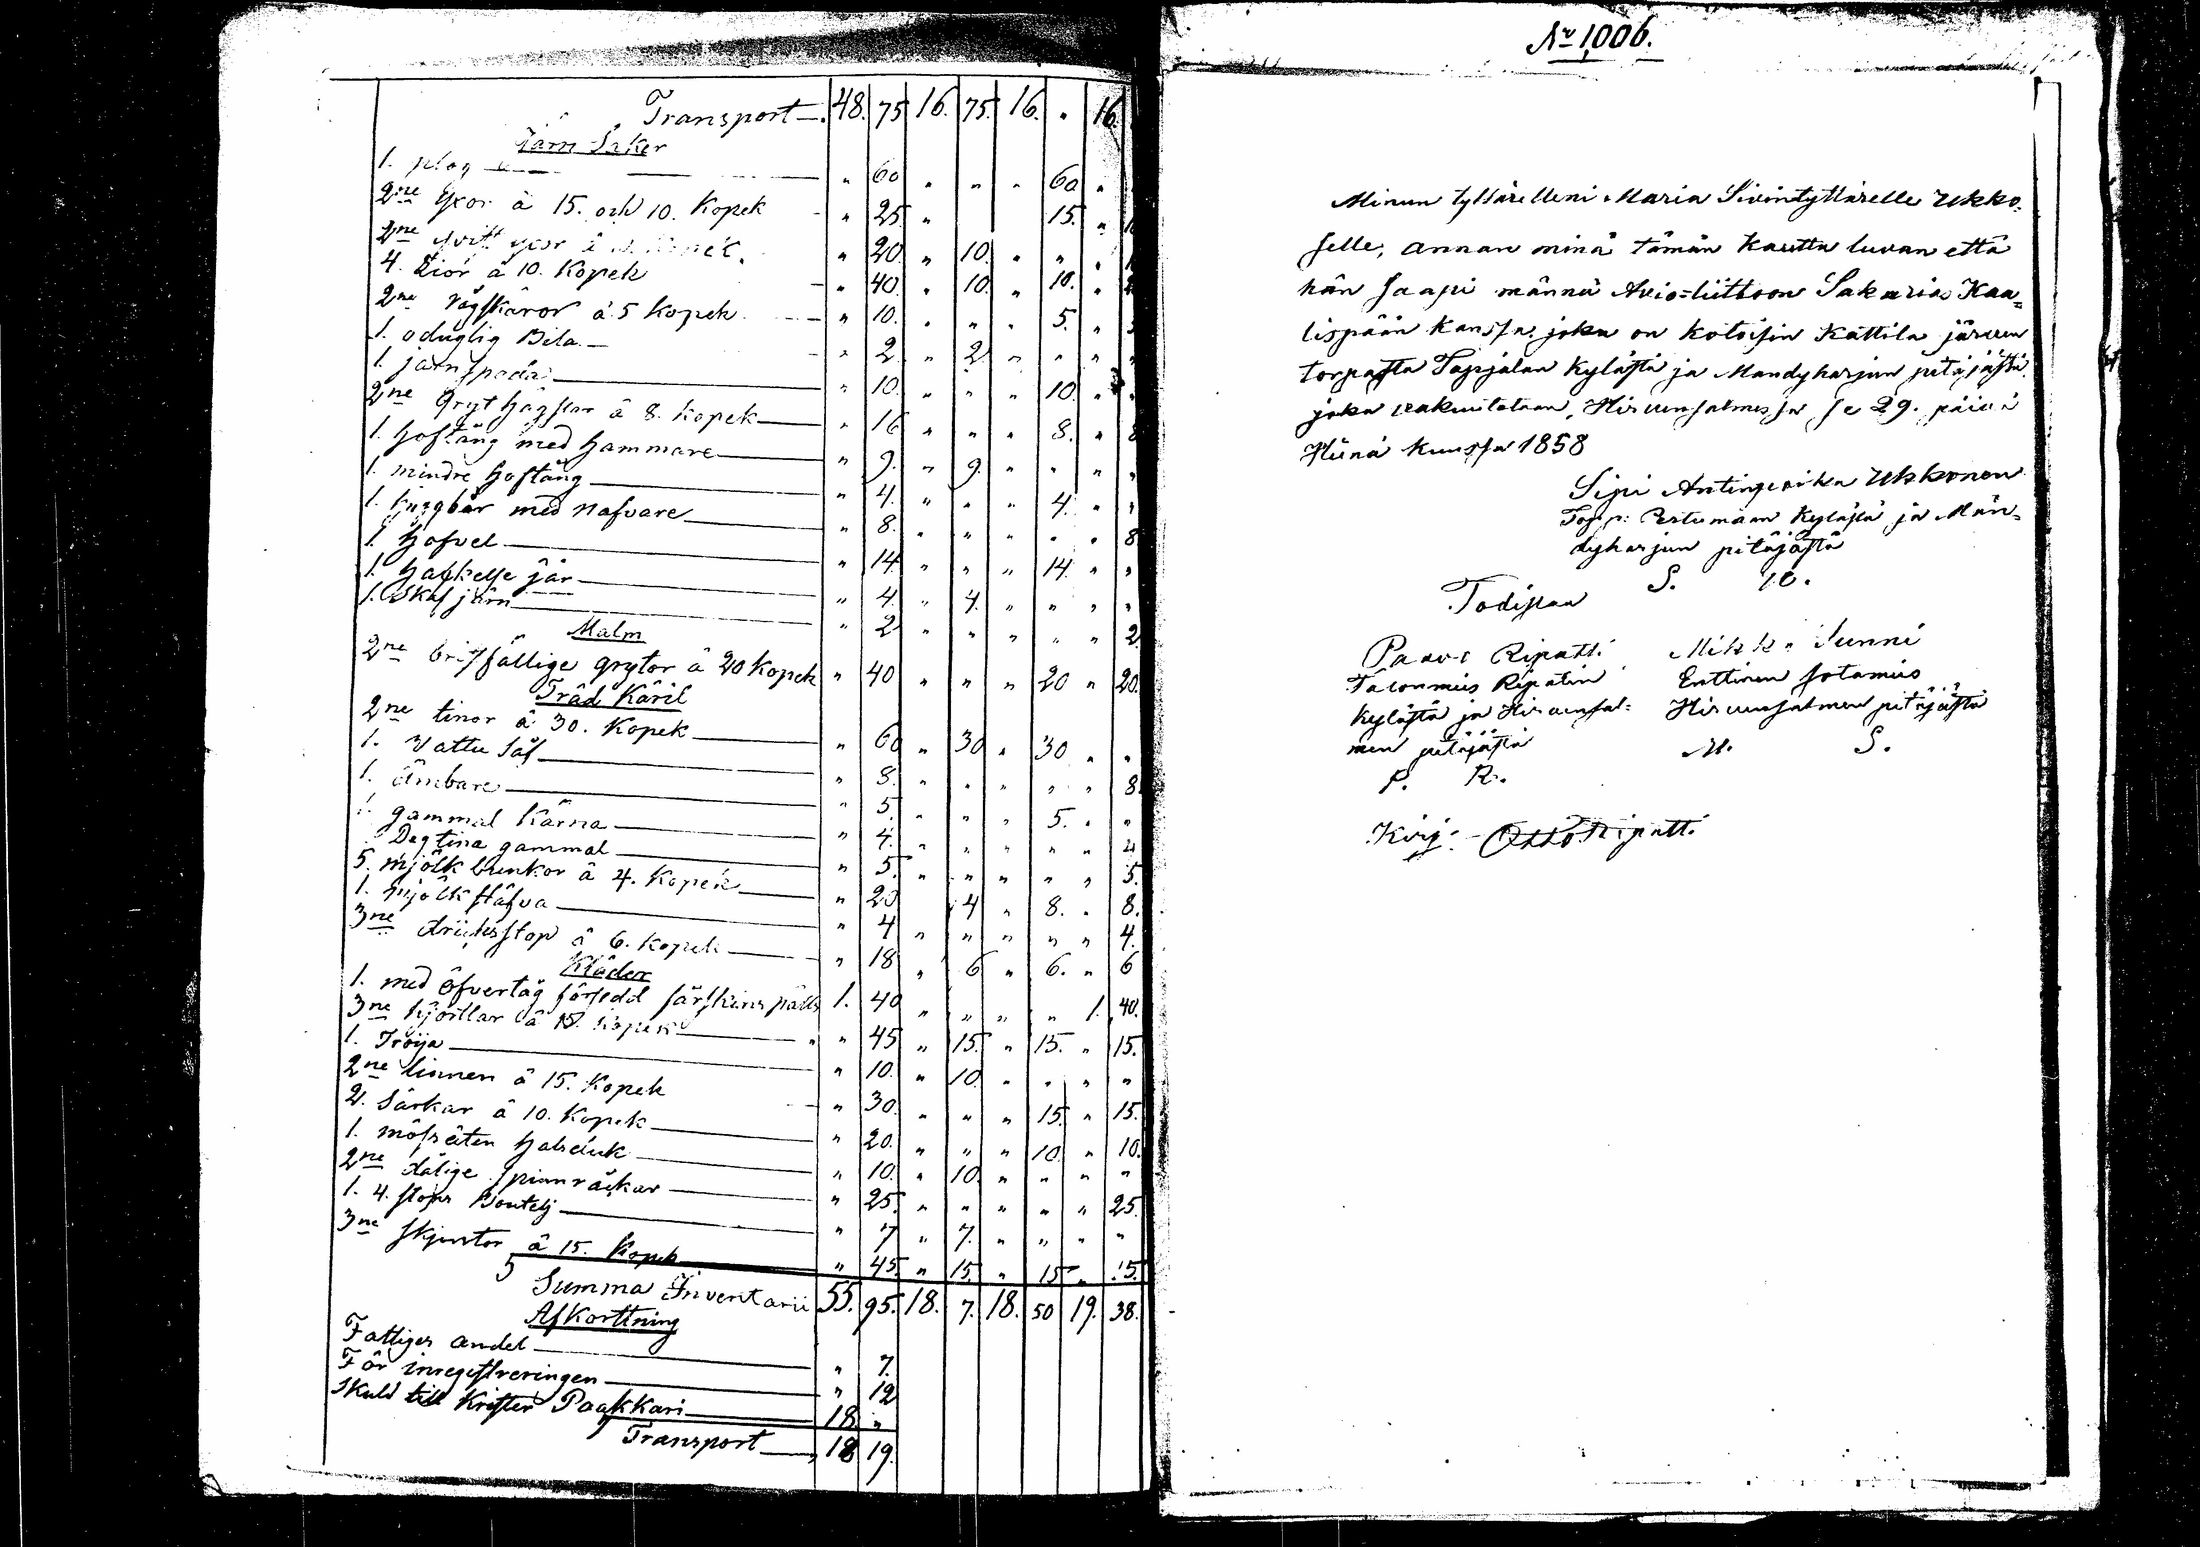 Transport 48. 75 16. 75. 16. " 16.
Järn Saker
1. plog " 60 " " " 60 "
2ne Yxor â 15. och 10. Kopek " 25 " 15. "
2ne yxor â " 20 " 10. " " "
4. Liор â 10. Kopek " 40. " 10. " 10.
2ne Rågskäror â 5 Kopek " 10. " " " 5. "
1. oduglig Bila " 2 " 2 " " " "
1. järnspada " 10. " " " 10. "
2ne Gryt hagstar â 8. Kopek " 16 " " " 8. " 8
1. hoftång med hammare " 9. " 9. " " " "
1. mindre hoftång " 4. " " " 4. " "
1. med nafvare " 8. " " " " " 8
1. hofvel " 14. " " " 14. " "
1. järn " 4. " 4. " " " "
1. Skafjärn " 2 " " " " " 2
Malm
2ne bristfällige grytor â 20 Kopek " 40 " " " 20 " 20.
Träd Käril
2ne tinor â 30. Kopek " 60 " 30 " 30 " "
1. Vattu Så " 8. " " " " " 8
1. Ämbare " 5. " " " 5. " "
1. gammal Kärna " 4. " " " " " 4
Degtina gammal " 5. " " " " " 5.
5. mjölk bunkor â 4. Kopek " 20 4 " 8. " 8.
1. mjölkstäfva " 4 " " " " " 4.
3ne dricksstop â 6. Kopek " 18 " 6 " 6. " 6
Kläder
1. med öfvertåg försedd fårskins päls 1. 40 " " " " 1. 40.
3ne kjortlar â 15. Kopek " 45 " 15. " 15. " 15.
1. Tröija " 10. " 10. " " " "
2ne linnen â 15. Kopek " 30. " " " 15. " 15.
2. Särkar â 10. Kopek " 20. " " " 10. " 10.
1. halsduk " 10. " 10. " " " "
2ne dålige spinnråckar " 25. " " " " " 25.
1. 4. stops Boutelj " 7 " 7. " " " "
3ne skjortor â 15. Kopek " 45. " 15. " 15 " 15.
Summa Inventarii 55. 95. 18. 7. 18. 50 19. 38.
Afkorttning
Fattiges andel " 7.
För inregistreringen " 12
Skuld till Krister Paakkari 18. "
Transport 18 19.
No 1006.
Minun tyttärelleni Maria Sivintyttärelle Ukko=
selle, annan minä tämän kautta luvan että
hän saapi männä Avio=liittoon Sakarias Kaa=
lispään kanssa, joka on kotoisin Kattila järven
torpasta Tapjalan Kylästä ja Mandyharjun pitäjästä,
joka vakuutetaan, Hirvensalmessa se 29. päivä
Heinä kuussa 1858
Sipi Antinpoika Ukkonen
Torp: Pertumaan Kylästä ja Män=
dyharjun pitäjästä
S. U.
Todistaa
Paavo Ripatti
Talonmies Ripatin
kylästä ja Hirvensal=
men pitäjästä
P. R.
Mikko Sunni
Enttinen sotamies
Hirvensalmen pitäjästä
M. S.
Kirj: Otto Ripatti